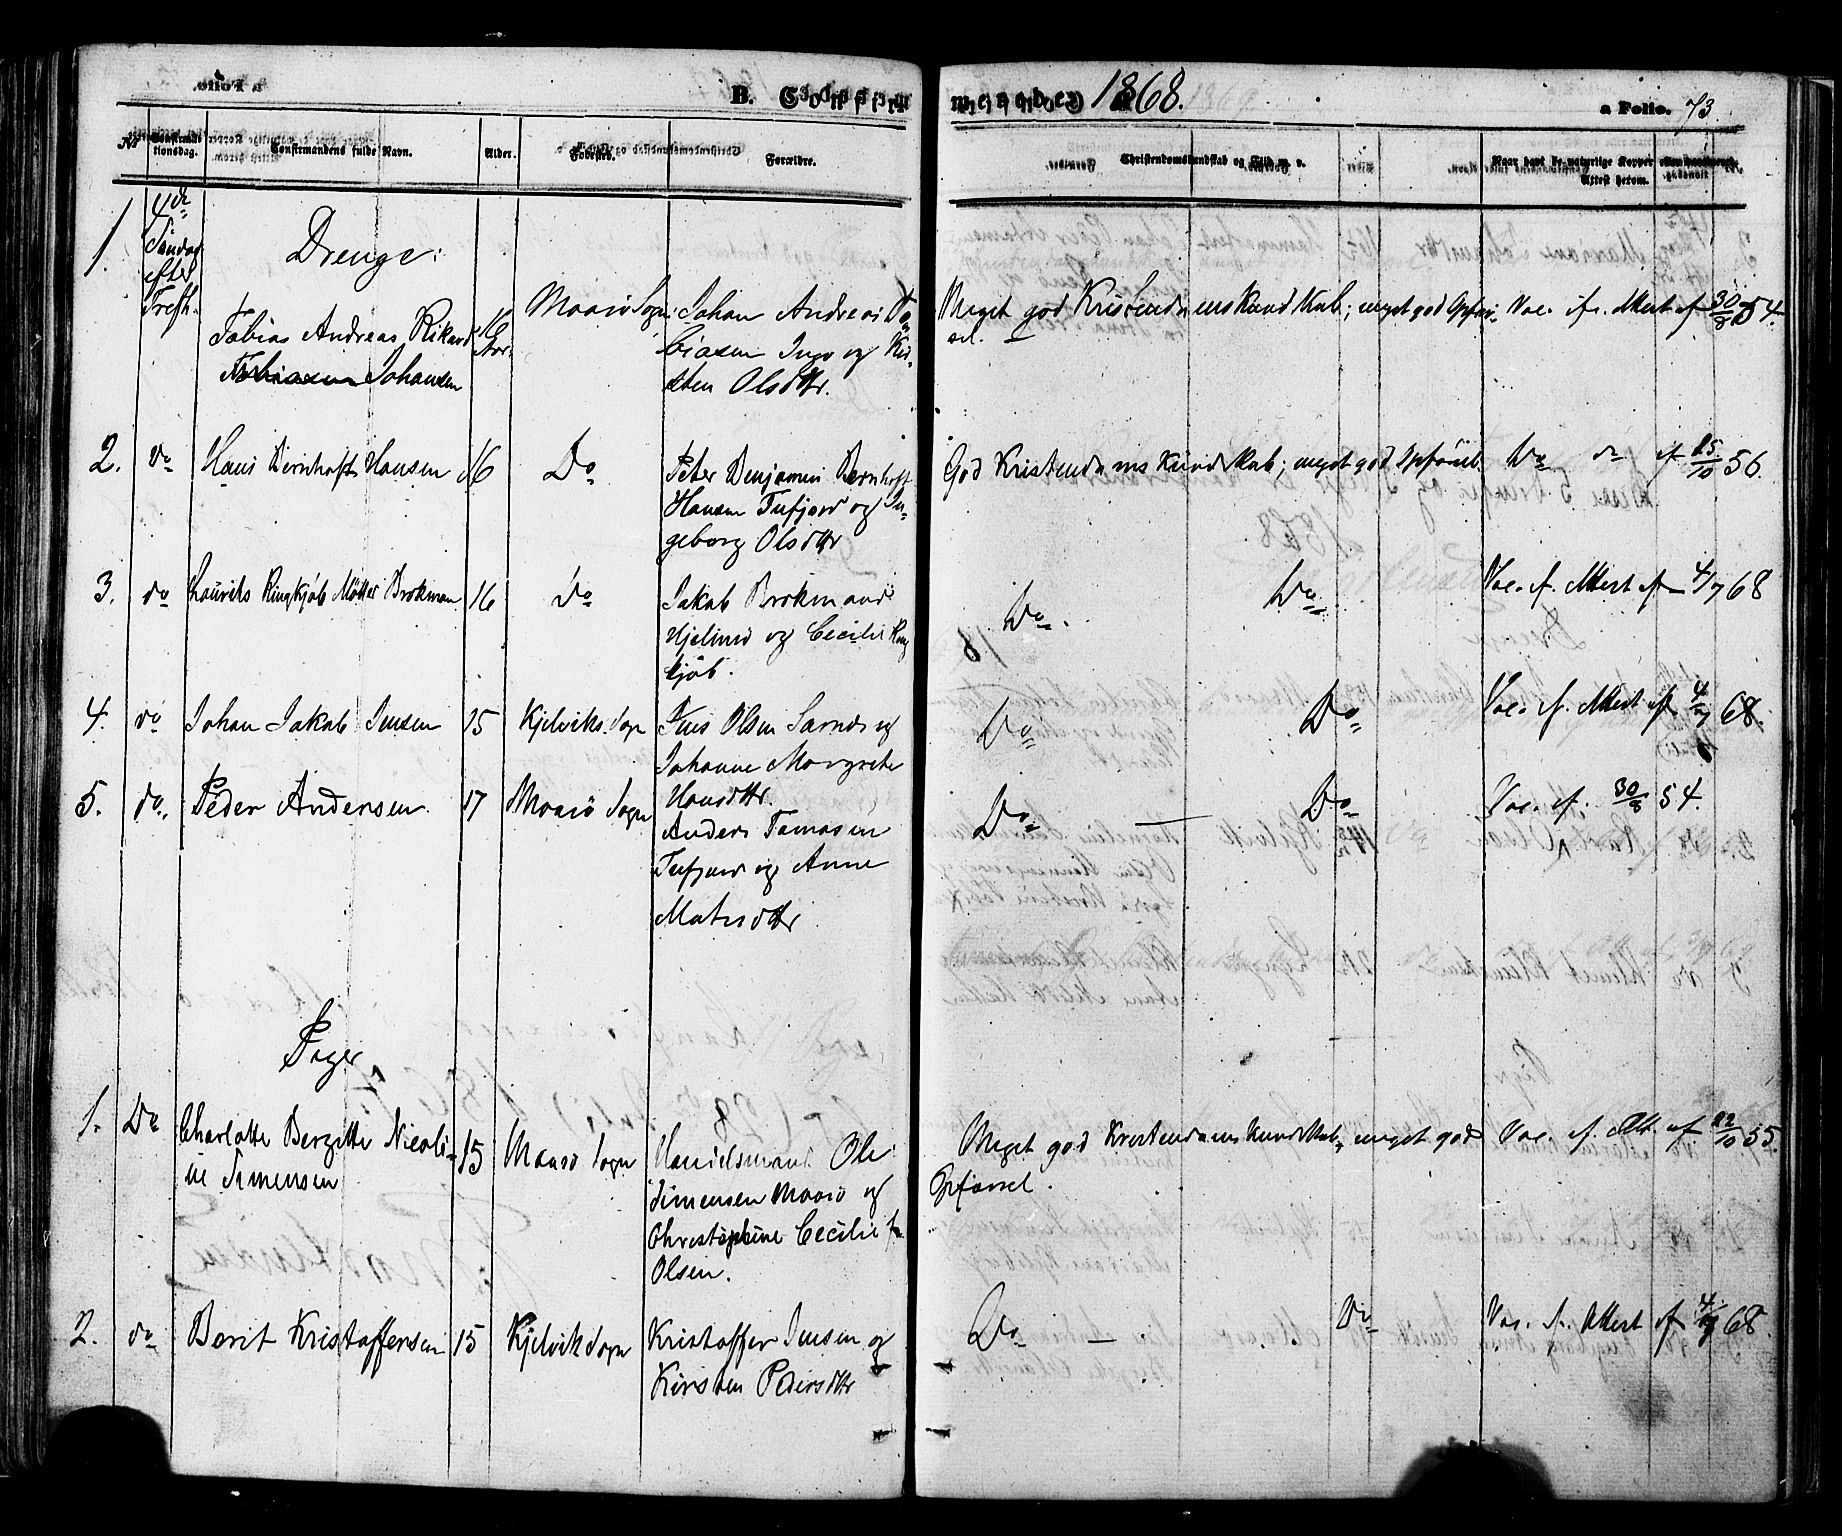 B. Confirmerede 1868. a Folio. 73.
No Confirmationsdag. Confirmandens fulde Navn. Alder. Fødested. Forældre. Christendomskundskab og Flid m. v. Naar havt de naturlige Kopper eller Vaccinerede Attest herom.
Drenge:
1. 4de Søndag efter Tref.
Tobias Andreas Rikard
Johansen
16 Aar.
Maasø Sogn.
Johan Andreas To
biasen Ingø og Kir-
sten Olsdttr.
Meget god Kristendomskundskab; meget god Opfør-
sel.
Vac. if. Attest af 30/8 54.
2. do Hans Bernhoft Hansen 16 Do
Peter Benjamin Bernhoft
Hansen Tufjord og In-
geborg Olsdttr
God Kristendomskundskab; meget god Opførsel
Do do af 25/10 56.
3. do Lauriks Ringkjøb Møller Brokman 16 do
Jakob Brokmand
Hjelmsø og Cecilie Ring
kjøb.
Do. Do
Vac. if. Attest af 4/7 68
4. do Johan Jakob Jensen 15 Kjelviks Sogn
Jens Olsen Sarnes og
Johanne Margrete
Hansdttr.
Do Do
Vac. if. Attest af 4/7 68.
5. do. Peder Andersen 17 Maasø Sogn
Anders Tomasen
Tufjord og Anne
Matisdttr
Do — Do
Vac. if. 30/8 54.
Piger
1. Do Charlotte Bergitte Nicoli-
ne Simensen
15 Maasø Sogn
Handelsmand Ole
Simensen Maasø og
Christophine Cecilie f.
Olsen.
Meget god Kristendomskundskab, meget god
Opførsel.
Vac. if. Att. af 22/10 55.
2. do Berit Kristoffersen 15 Kjelvik Sogn
Kristoffer Jensen og
Kirsten Pedersdttr
Do — Do
Vac. if. Attest af 4/7 68.